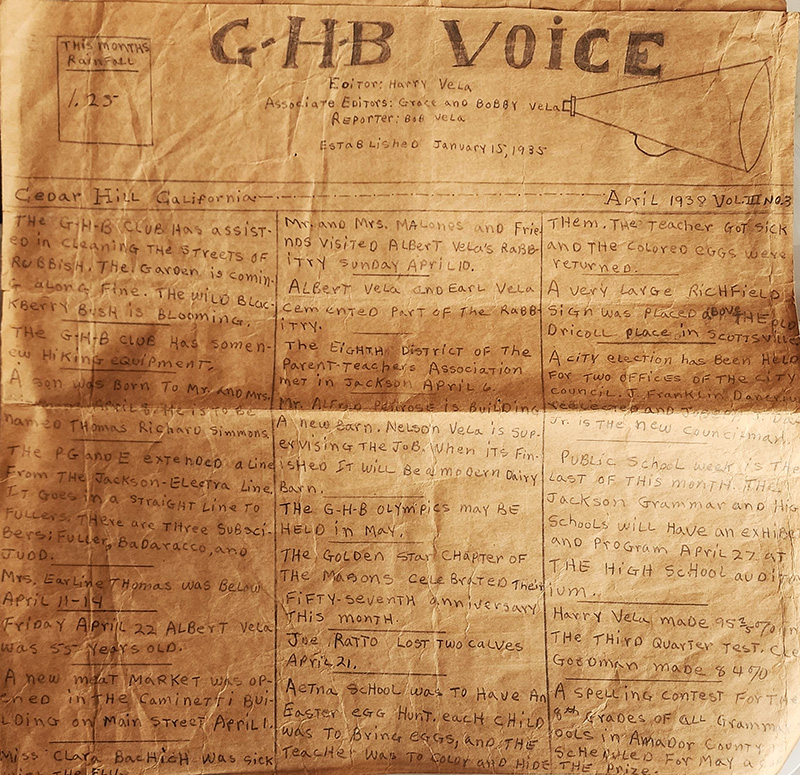 THIS MONTHS
RAINFALL
1.25
G-H-B VOICE
EDITOR: HARRY VELA
ASSOCIATE EDITORS: GRACE AND BOBBY VELA
REPORTER: BOB VELA
ESTABLISHED JANUARY 15, 1935
CEDAR HILL CALIFORNIA
APRIL 1938 VOL. III NO. 3
THE G-H-B CLUB HAS ASSIST-
ED IN CLEANING THE STREETS OF
RUBBISH. THE GARDEN IS COMIN-
G ALONG FINE. THE WILD BLAC-
KBERRY BUSH IS BLOOMING.
THE G-H-B CLUB HAS SOMEN-
EW HIKING EQUIPMENT.
A SON WAS BORN TO MR. AND MRS.
APRIL 8. HE IS TO BE
NAMED THOMAS RICHARD SIMMONS.
THE PG AND E EXTENDED A LINE
FROM THE JACKSON-ELECTRA LINE.
IT GOES IN A STRAIGHT LINE TO
FULLERS. THERE ARE THREE SUBSCI-
BERS: FULLER, BADARACCO, AND
JUDD.
MRS. EARLINE THOMAS WAS BELOW
APRIL 11-14
FRIDAY APRIL 22 ALBERT VELA
WAS 55 YEARS OLD.
A NEW MEAT MARKET WAS OP-
ENED IN THE CAMINETTI BUI-
LDING ON MAIN STREET APRIL 1.
MISS CLARA BACHICH WAS SICK
THE FLU
MR. AND MRS. MALONES AND FRIE-
NDS VISITED ALBERT VELA'S RABB-
ITRY SUNDAY APRIL 10.
ALBERT VELA AND EARL VELA
CEMENTED PART OF THE RABB-
ITRY.
THE EIGHTH DISTRICT OF THE
PARENT-TEACHERS ASSOCIATION
MET IN JACKSON APRIL 6.
MR. ALFRED PENROSE IS BUILDING
A NEW BARN. NELSON VELA IS SUP-
ERVISING THE JOB. WHEN ITS FIN-
ISHED IT WILL BE A MODERN DAIRY
BARN.
THE G-H-B OLYMPICS MAY BE
HELD IN MAY.
THE GOLDEN STAR CHAPTER OF
THE MASONS CELEBRATED THEIR
FIFTY-SEVENTH ANNIVERSARY
THIS MONTH.
JOE RATTO LOST TWO CALVES
APRIL 21.
AETNA SCHOOL WAS TO HAVE AN
EASTER EGG HUNT. EACH CHILD
WAS TO BRING EGGS, AND THE
TEACHER WAS TO COLOR AND HIDE
THEM. THE TEACHER GOT SICK
AND THE COLORED EGGS WERE
RETURNED.
A VERY LARGE RICHFIELD
SIGN WAS PLACED ABOVE THE OLD
DRICOLL PLACE IN SCOTTSVILLE
A CITY ELECTION HAS BEEN HELD
FOR TWO OFFICES OF THE CITY
COUNCIL. J. FRANKLIN
REELECTED AND
JR. IS THE NEW COUNCILMAN.
PUBLIC SCHOOL WEEK IS THE
LAST OF THIS MONTH. THE
JACKSON GRAMMAR AND HIG
SCHOOLS WILL HAVE AN EXHIBE
AND PROGRAM APRIL 27 AT
THE HIGH SCHOOL AUDIT
IUM.
HARRY VELA MADE IN
THE THIRD QUARTER TEST. CLE
GOODMAN MADE 84%
A SPELLING CONTEST FOR THE
8TH GRADES OF ALL GRAMM
OOLS IN AMADOR COUNTY
SCHEDULED FOR MAY
THE PRIZE